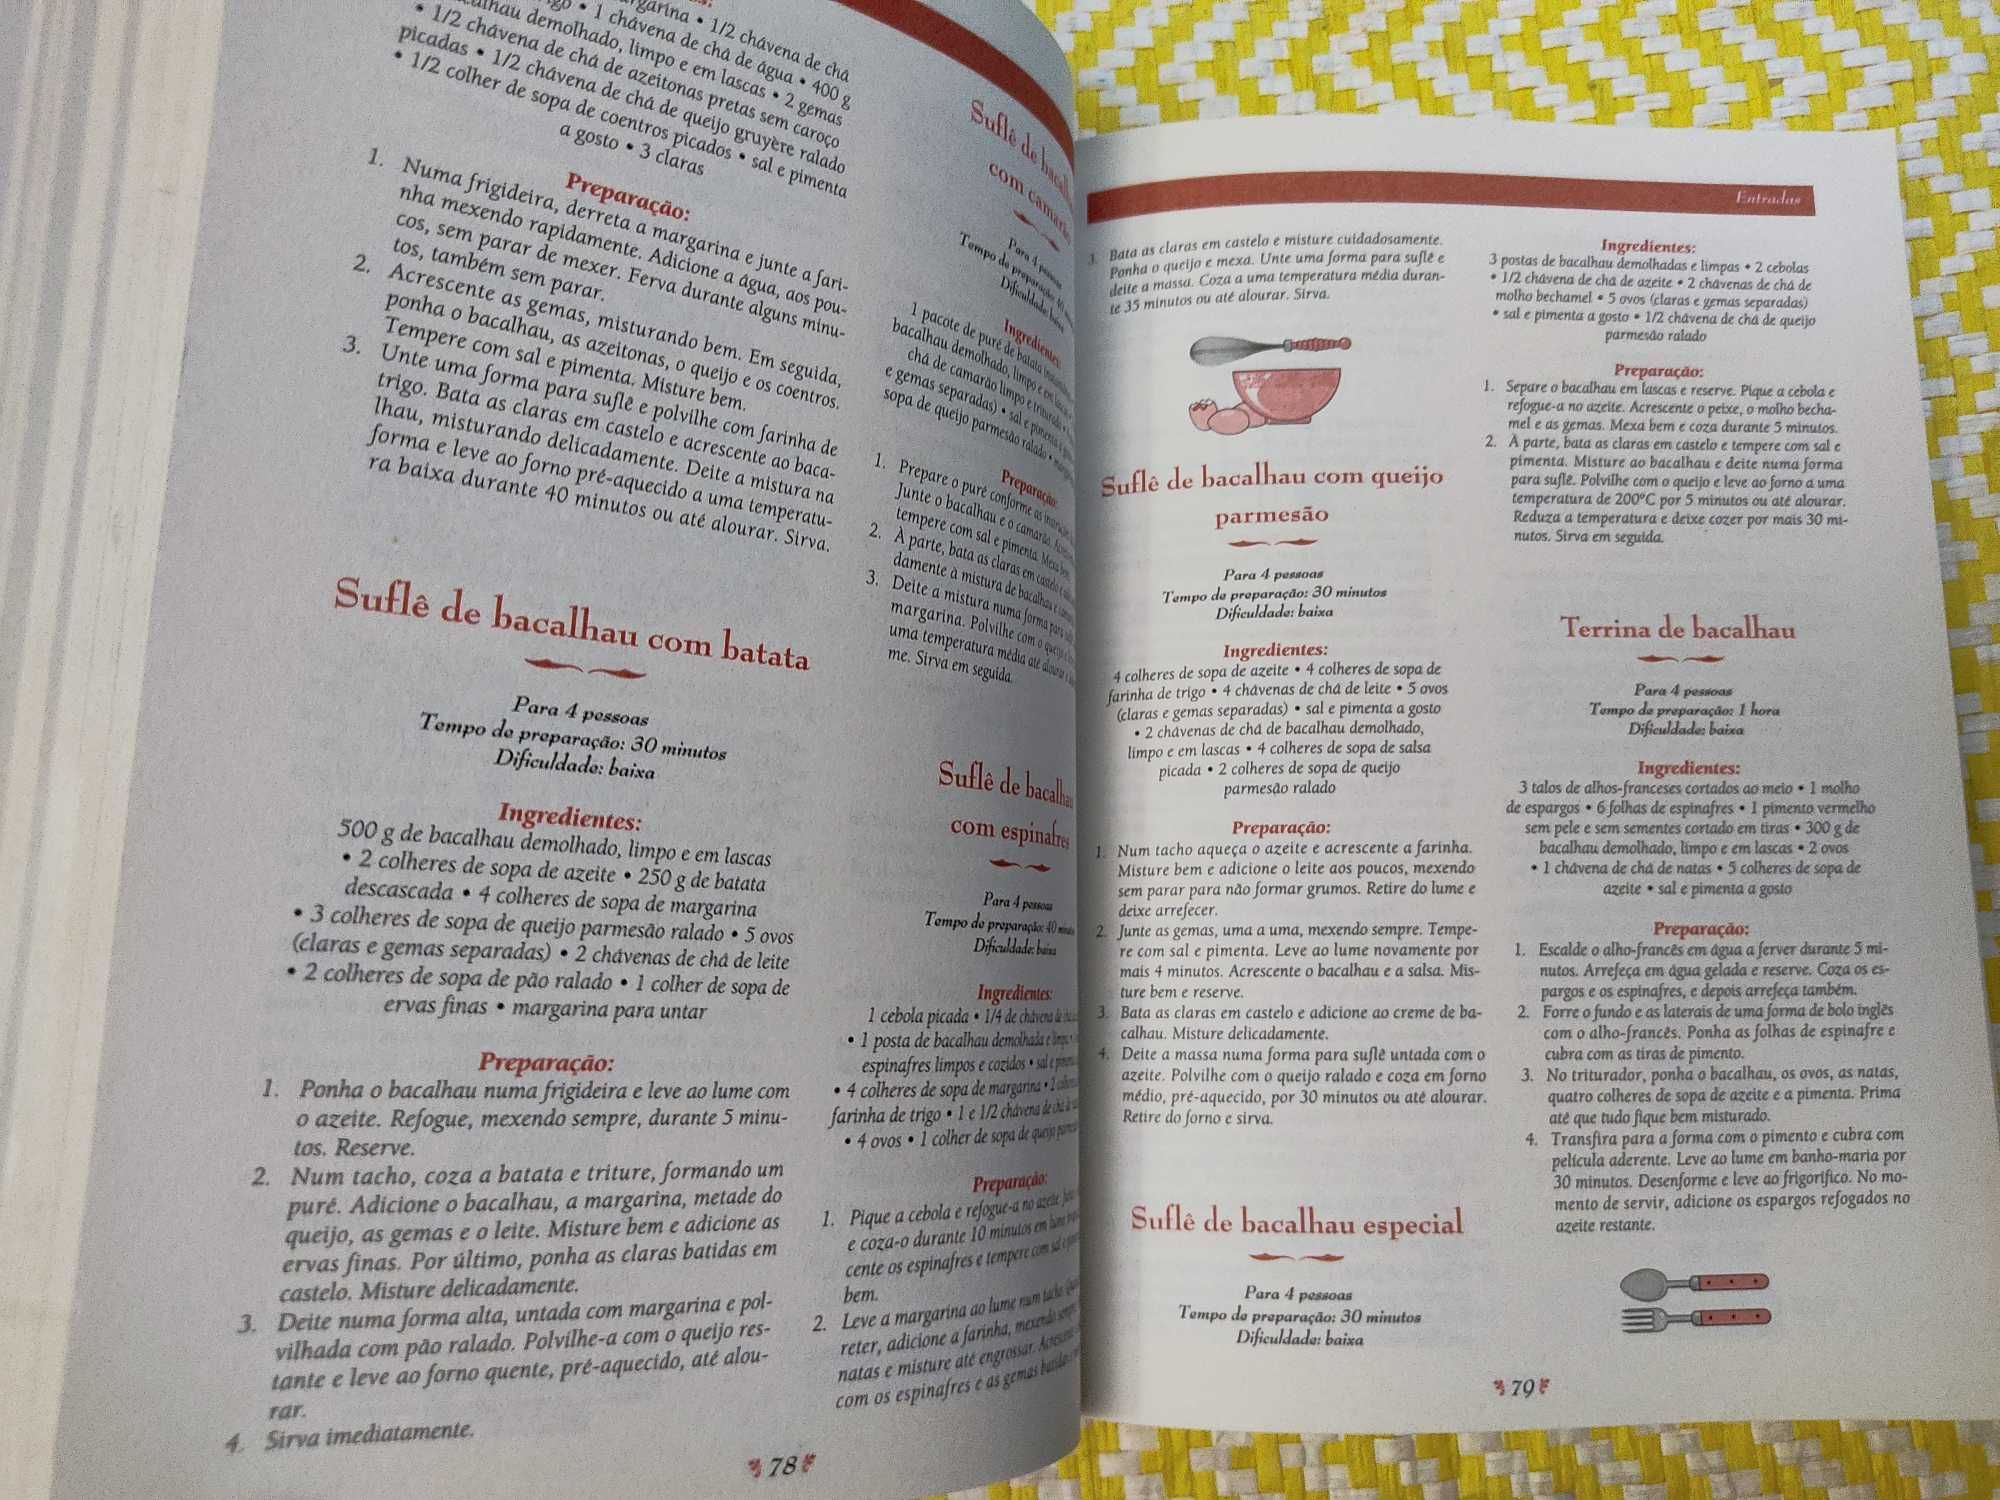 margarina • 1/2 chávena de chá
• 1 chávena de chá de água • 400 g
demolhado, limpo e em lascas • 2 gemas
• 1/2 chávena de chá de azeitonas pretas sem caroço
picadas • 1/2 chávena de chá de queijo gruyère ralado
• 1/2 colher de sopa de coentros picados • sal e pimenta
a gosto • 3 claras
Preparação:
1. Numa frigideira, derreta a margarina e junte a fari-
nha mexendo rapidamente. Adicione a água, aos pou-
cos, sem parar de mexer. Ferva durante alguns minu-
tos, também sem parar.
2. Acrescente as gemas, misturando bem. Em seguida,
ponha o bacalhau, as azeitonas, o queijo e os coentros.
Tempere com sal e pimenta. Misture bem.
3. Unte uma forma para suflê e polvilhe com farinha de
trigo. Bata as claras em castelo e acrescente ao baca-
lhau, misturando delicadamente. Deite a mistura na
forma e leve ao forno pré-aquecido a uma temperatu-
ra baixa durante 40 minutos ou até alourar. Sirva.
Suflê de bacalhau com batata
Para 4 pessoas
Tempo de preparação: 30 minutos
Dificuldade: baixa
Ingredientes:
500 g de bacalhau demolhado, limpo e em lascas
• 2 colheres de sopa de azeite • 250 g de batata
descascada • 4 colheres de sopa de margarina
• 3 colheres de sopa de queijo parmesão ralado • 5 ovos
(claras e gemas separadas) • 2 chávenas de chá de leite
• 2 colheres de sopa de pão ralado • 1 colher de sopa de
ervas finas • margarina para untar
Preparação:
1. Ponha o bacalhau numa frigideira e leve ao lume com
o azeite. Refogue, mexendo sempre, durante 5 minu-
tos. Reserve.
2. Num tacho, coza a batata e triture, formando um
puré. Adicione o bacalhau, a margarina, metade do
queijo, as gemas e o leite. Misture bem e adicione as
ervas finas. Por último, ponha as claras batidas em
castelo. Misture delicadamente.
3. Deite numa forma alta, untada com margarina e pol-
vilhada com pão ralado. Polvilhe-a com o queijo res-
tante e leve ao forno quente, pré-aquecido, até alou-
rar.
4. Sirva imediatamente.
Suflê de
com camarão
Para 4 pessoas
Tempo de preparação: 40
Dificuldade: baixa
Ingredientes:
1 pacote de puré de batata
bacalhau demolhado, limpo e em
chá de camarão limpo e triturado •
e gemas separadas) • sal e pimenta a
sopa de queijo parmesão ralado •
Preparação:
1. Prepare o puré conforme as
Junte o bacalhau e o camarão.
tempere com sal e pimenta. Mexa
2. À parte, bata as claras em castelo e
damente à mistura de bacalhau e
3. Deite a mistura numa forma para suflê
margarina. Polvilhe com o queijo e
uma temperatura média até alourar
me. Sirva em seguida.
Suflê de bacalhau
com espinafres
Para 4 pessoas
Tempo de preparação: 40 minutos
Dificuldade: baixa
Ingredientes:
1 cebola picada • 1/4 de chávena de
• 1 posta de bacalhau demolhada e limpa •
espinafres limpos e cozidos • sal e pimenta
• 4 colheres de sopa de margarina • 2
farinha de trigo • 1 e 1/2 chávena de chá de
• 4 ovos • 1 colher de sopa de queijo
Preparação:
1. Pique a cebola e refogue-a no azeite.
e coza-o durante 10 minutos em lume
cente os espinafres e tempere com sal e
bem.
2. Leve a margarina ao lume num tacho.
reter, adicione a farinha, mexendo sempre.
natas e misture até engrossar.
com os espinafres e as gemas
78
Entradas
3. Bata as claras em castelo e misture cuidadosamente.
Ponha o queijo e mexa. Unte uma forma para suflê e
deite a massa. Coza a uma temperatura média duran-
te 35 minutos ou até alourar. Sirva.
Suflê de bacalhau com queijo
parmesão
Para 4 pessoas
Tempo de preparação: 30 minutos
Dificuldade: baixa
Ingredientes:
4 colheres de sopa de azeite • 4 colheres de sopa de
farinha de trigo • 4 chávenas de chá de leite • 5 ovos
(claras e gemas separadas) • sal e pimenta a gosto
• 2 chávenas de chá de bacalhau demolhado,
limpo e em lascas • 4 colheres de sopa de salsa
picada • 2 colheres de sopa de queijo
parmesão ralado
Preparação:
1. Num tacho aqueça o azeite e acrescente a farinha.
Misture bem e adicione o leite aos poucos, mexendo
sem parar para não formar grumos. Retire do lume e
deixe arrefecer.
2. Junte as gemas, uma a uma, mexendo sempre. Tempe-
re com sal e pimenta. Leve ao lume novamente por
mais 4 minutos. Acrescente o bacalhau e a salsa. Mis-
ture bem e reserve.
3. Bata as claras em castelo e adicione ao creme de ba-
calhau. Misture delicadamente.
4. Deite a massa numa forma para suflê untada com o
azeite. Polvilhe com o queijo ralado e coza em forno
médio, pré-aquecido, por 30 minutos ou até alourar.
Retire do forno e sirva.
Suflê de bacalhau especial
Para 4 pessoas
Tempo de preparação: 30 minutos
Dificuldade: baixa
Ingredientes:
3 postas de bacalhau demolhadas e limpas • 2 cebolas
• 1/2 chávena de chá de azeite • 2 chávenas de chá de
molho bechamel • 5 ovos (claras e gemas separadas)
• sal e pimenta a gosto • 1/2 chávena de chá de queijo
parmesão ralado
Preparação:
1. Separe o bacalhau em lascas e reserve. Pique a cebola e
refogue-a no azeite. Acrescente o peixe, o molho becha-
mel e as gemas. Mexa bem e coza durante 5 minutos.
2. À parte, bata as claras em castelo e tempere com sal e
pimenta. Misture ao bacalhau e deite numa forma
para suflê. Polvilhe com o queijo e leve ao forno a uma
temperatura de 200ºC por 5 minutos ou até alourar.
Reduza a temperatura e deixe cozer por mais 30 mi-
nutos. Sirva em seguida.
Terrina de bacalhau
Para 4 pessoas
Tempo de preparação: 1 hora
Dificuldade: baixa
Ingredientes:
3 talos de alhos-franceses cortados ao meio • 1 molho
de espargos • 6 folhas de espinafres • 1 pimento vermelho
sem pele e sem sementes cortado em tiras • 300 g de
bacalhau demolhado, limpo e em lascas • 2 ovos
• 1 chávena de chá de natas • 5 colheres de sopa de
azeite • sal e pimenta a gosto
Preparação:
1. Escalde o alho-francês em água a ferver durante 5 mi-
nutos. Arrefeça em água gelada e reserve. Coza os es-
pargos e os espinafres, e depois arrefeça também.
2. Forre o fundo e as laterais de uma forma de bolo inglês
com o alho-francês. Ponha as folhas de espinafre e
cubra com as tiras de pimento.
3. No triturador, ponha o bacalhau, os ovos, as natas,
quatro colheres de sopa de azeite e a pimenta. Prima
até que tudo fique bem misturado.
4. Transfira para a forma com o pimento e cubra com
película aderente. Leve ao lume em banho-maria por
30 minutos. Desenforme e leve ao frigorífico. No mo-
mento de servir, adicione os espargos refogados no
azeite restante.
79